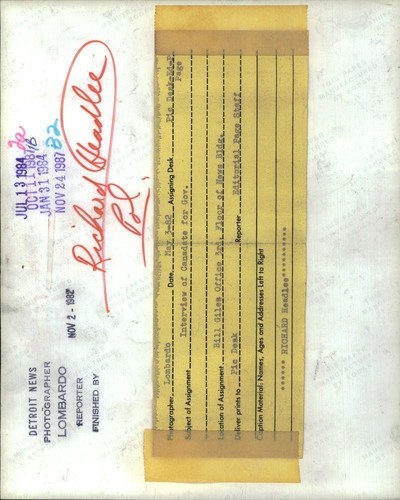 JUL 13 1984
OCT 11 1984
JAN 31 1984
NOV 24 1987
82
Richard Headlee
Pol.
DETROIT NEWS
PHOTOGRAPHER
LOMBARDO
REPORTER
FINISHED BY
NOV 2 - 1982
Photographer Lombardo Date May 3-82 Assigning Desk Pic Desk-Ed-P
Page
Subject of Assignment Interview of Canadate for Gov.
Location of Assignment Bill Giles Office 3rd. Floor of News Bldg.
Deliver prints to Pic Desk Reporter Editorial Page Staff
Caption Material: Names, Ages and Addresses Left to Right
RICHARD Headlee